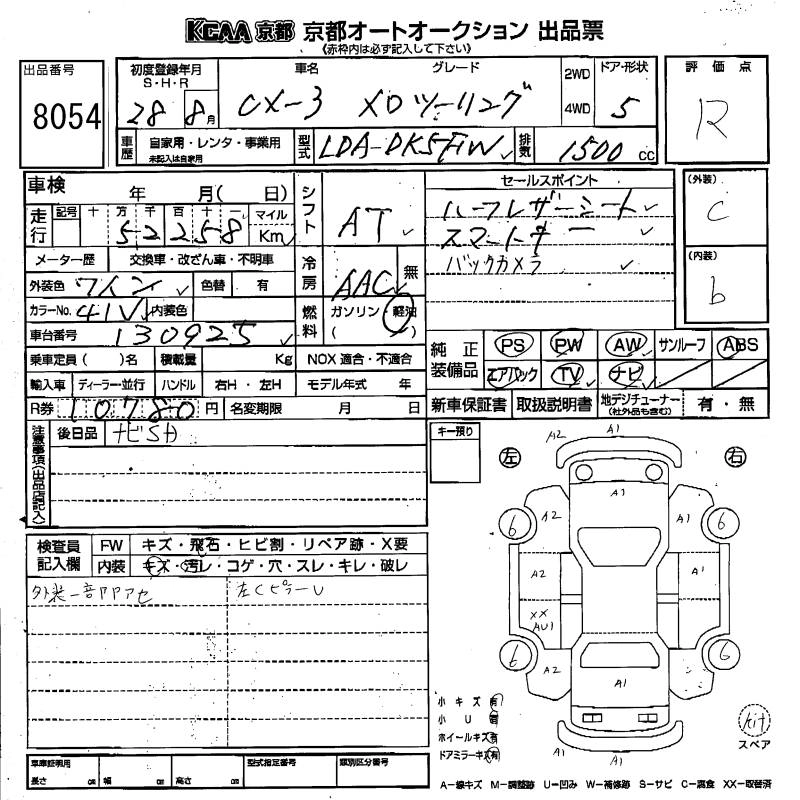 KCAA 京都 京都オートオークション 出品票
《赤枠内は必ず記入して下さい》
出品番号 8054
初度登録年月 S・H・R 28 8月
車名 CX-3
グレード XDツーリング
2WD 4WD
ドア・形状 5
評価点 R
車歴 自家用・レンタ・事業用 未記入は自家用
型式 LDA-DK5FW
排気 1500 cc
車検 年 月( 日)
シフト AT
セールスポイント
ハーフレザーシート
スマートキー
バックカメラ
(外装) C
(内装) b
走行 記号 十 万 千 百 十 一 マイル Km
52258
メーター歴 交換車・改ざん車・不明車
冷房 AAC 無
外装色 ワイン 色替 有
カラーNo. 41V 内装色
燃料 ガソリン・軽油 ( )
車台番号 130925
純正装備品 PS PW AW サンルーフ ABS
エアバック TV ナビ
乗車定員( )名 積載量 Kg NOX適合・不適合
輸入車 ディーラー・並行 ハンドル 右H・左H モデル年式 年
新車保証書 取扱説明書 地デジチューナー(社外品も含む) 有・無
R券 10780円 名変期限 月 日
注意事項(出品店記入)
後日品 ナビSD
キー預り
左 右
A2 A1
A1
A2 A1
6 6
A2 A1
XX AU1
6 6
A2 A1
A1 A1
検査員記入欄
FW キズ・飛石・ヒビ割・リペア跡・X要
内装 キズ・汚レ・コゲ・穴・スレ・キレ・破レ
外装一部ヤケアセ
左CピラーU
小キズ有
小U有
ホイールキズ有
ドアミラーキズ有
kit
スペア
車庫証明用 長さ cm 幅 cm 高さ cm
型式指定番号 類別区分番号
A-線キズ M-調整跡 U-凹み W-補修跡 S-サビ C-腐食 XX-取替済